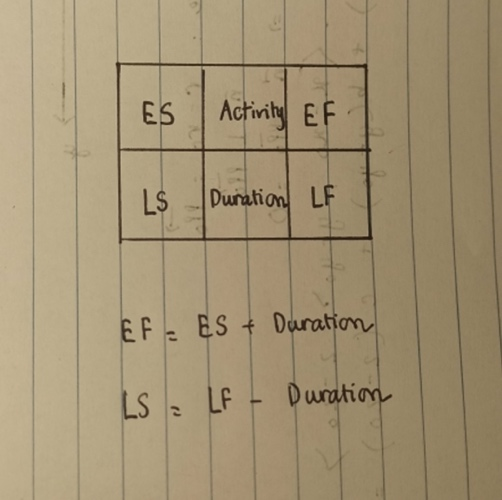 ES Activity EF
LS Duration LF
EF = ES + Duration
LS = LF - Duration